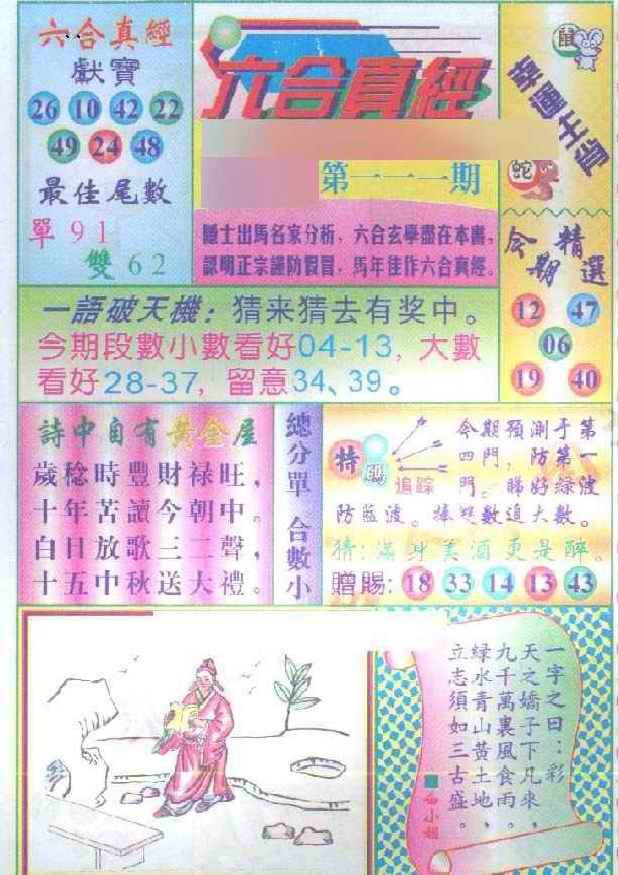 六合真經
獻寶
26 10 42 22
49 24 48
最佳尾數
單 91
雙 62
六合真經
第一一一期
隱士出馬名家分析，六合玄學盡在本書，
認明正宗謹防假冒，馬年佳作六合真經。
鼠
幸運生肖
蛇
今期精選
12 47
06
19 40
一語破天機：猜来猜去有奖中。
今期段數小數看好04-13，大數
看好28-37，留意34、39。
詩中自有黃金屋
歲稔時豐財禄旺，
十年苦讀今朝中。
白日放歌三二聲，
十五中秋送大禮。
總分單 合數小
特碼
追踪
今期預測于第
四門，防第一
門。睇好緑波
防藍波。捧雙數追大數。
猜：滿身美酒更是醉。
贈賜：18 33 14 13 43
一字之曰：彩
天之嬌子下凡來，
九千萬裏風食雨，
緑水青山黃土地，
立志須如三古盛。
小姐